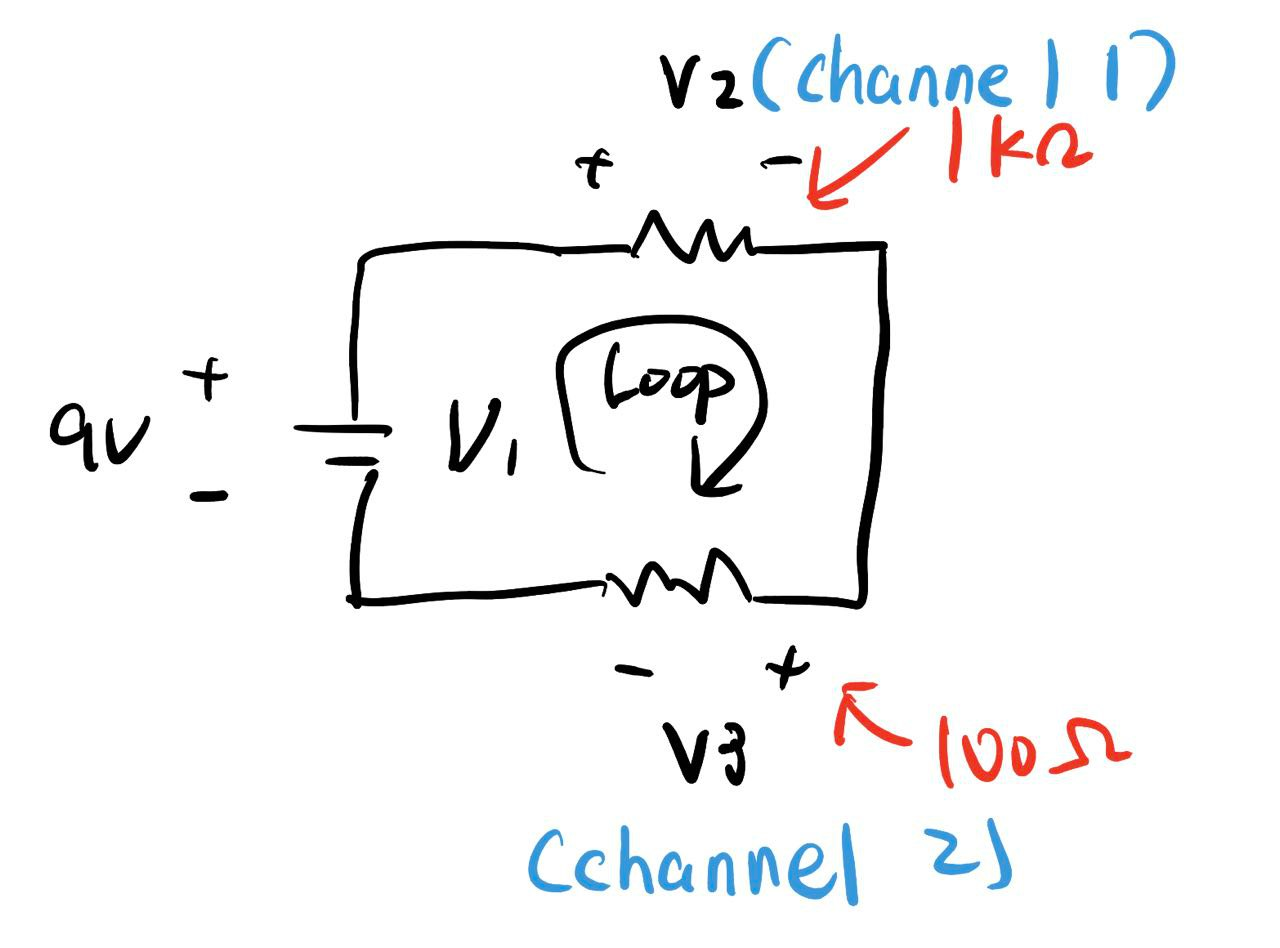 V2(channel 1)
1kΩ
+ -
+
9V
-
V1
Loop
- +
V3
100Ω
(channel 2)